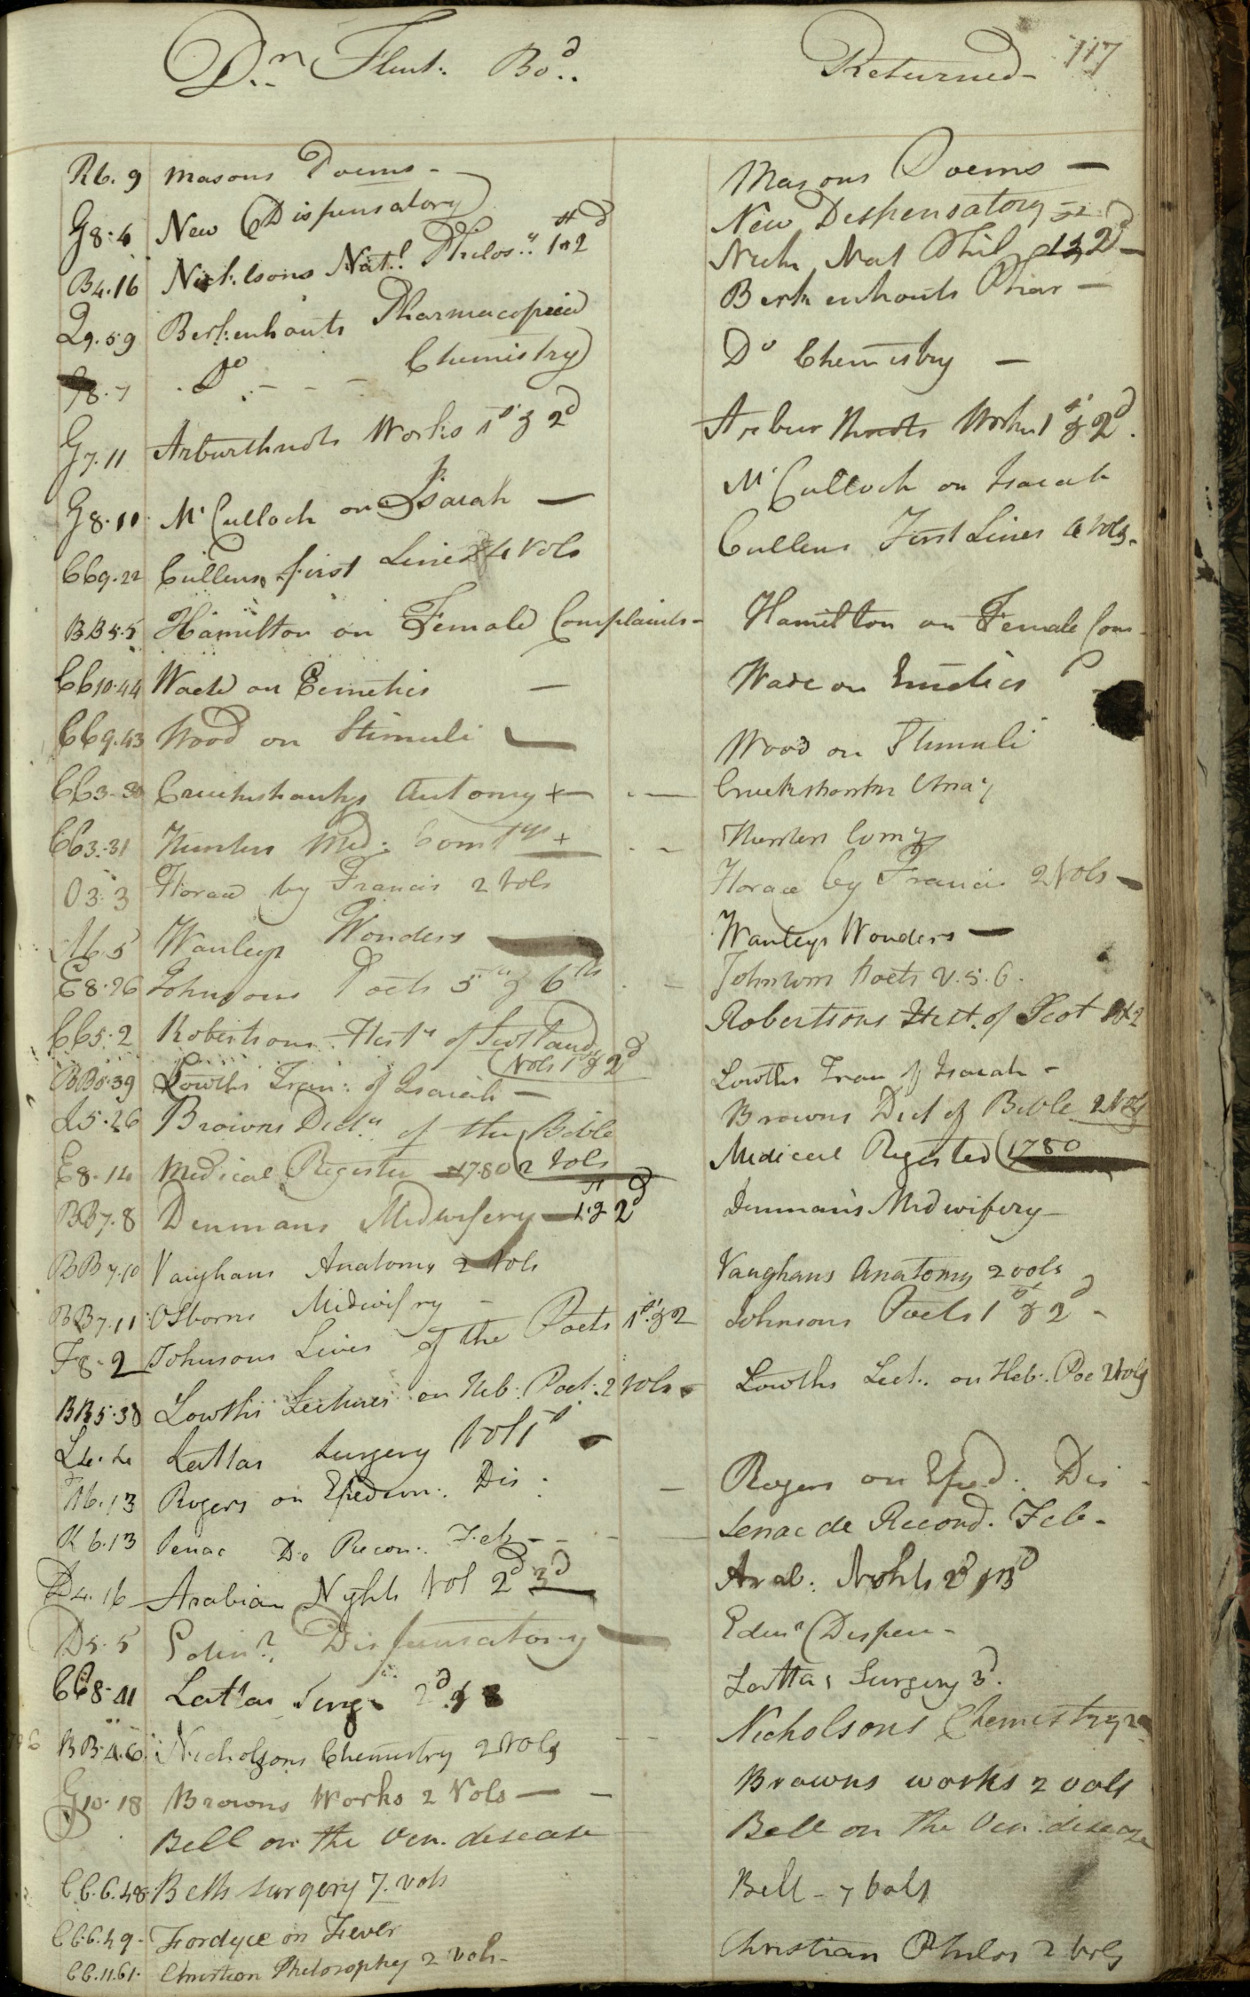 Dr. Flint. Bod.. Returned- 117
R6. 9 Masons Poems - Masons Poems -
G8. 6 New Dispensatory New Despensatory
B4. 16 Nichelsons Natl. Philosy. 1st 2d Nich Nat Phil 1 & 2d -
Q9. 59 Berkenhouts Pharmacopeia Berkenhouts Phar -
8. 7 Do - - - Chemistry Do Chemistry -
G7. 11 Arburthnots Works 1st & 2d Arburthnots Works 1st & 2d.
G8. 10 Mc Culloch on Isaiah - Mc Culloch on Isaiah
CC9. 22 Cullens first Lines 4 Vols Cullens First Lines 4 Vols.
BB5. 5 Hamilton on Female Complaints - Hamilton on Female Com
CC10. 44 Wade on Eemetics - Wade on Emetics
CC9. 43 Wood on Stimuli - Wood on Stimuli
CC3. 30 Cruikshanks Antomy + - Cruikshanks Ana;
CC3. 31 Hunters Med: Comtys + Hunters Comys
O3. 3 Horace by Francis 2 Vols Horace by Francis 2 Vols -
M6. 5 Wanleys Wonders Wanleys Wonders -
E8. 26 Johnsons Poets 5th & 6th Johnsons Poets V. 5. 6.
CC5. 2 Robertsons Histy of Scotland Robertsons Hist. of Scot 1 & 2
(Vols 1st & 2d
BB5. 39 Lowths Tran: of Isaiah - Lowths Tran of Isaiah -
L5. 26 Browns Dicty of the Bible Browns Dict of Bible 2 Vols
(2 Vols
E8. 14 Medical Register 1780 Medical Register (1780
BB7. 8 Denmans Midwifery 1st & 2d Denman's Midwifery -
BB7. 10 Vaughans Anatomy 2 Vols Vaughans Anatomy 2 vols
BB7. 11 Osborns Midwifry -
F8. 2 Johnsons Lives of the Poets 1st. & 2 Johnsons Poets 1st & 2d -
BB5. 38 Lowths Lectures on Heb: Poet: 2 Vols Lowths Lect. on Heb. Poe 2 Vols
L4. 4 Lattas Surgery Vol 1st
R6. 13 Rogers on Epedem: Dis: - Rogers on Eped: Dis -
K6. 13 Senac De Recon. Feb - - Senac de Recond. Feb -
D4. 16 Arabian Nights Vol 2d 3d Arab. Nights 2d 3d
D5. 5 Edinr. Dispensatory Edinr Dispen -
CC8. 41 Lattas Surg. 2d & 3 Lattas Surgery 3d.
BB4. 6 Nicholsons Chemistry 2 Vols Nicholsons Chemistry 2
G10. 18 Browns Works 2 Vols - - Browns works 2 vols
Bell on the Ven. desease Bell on the Ven. disease
CC. 6. 48. Bells surgery 7. vols Bell - 7 vols
CC. 6. 49. Fordyce on Fever
CC. 11. 61. Christian Philosophy 2 vols - Christian Philos 2 vols